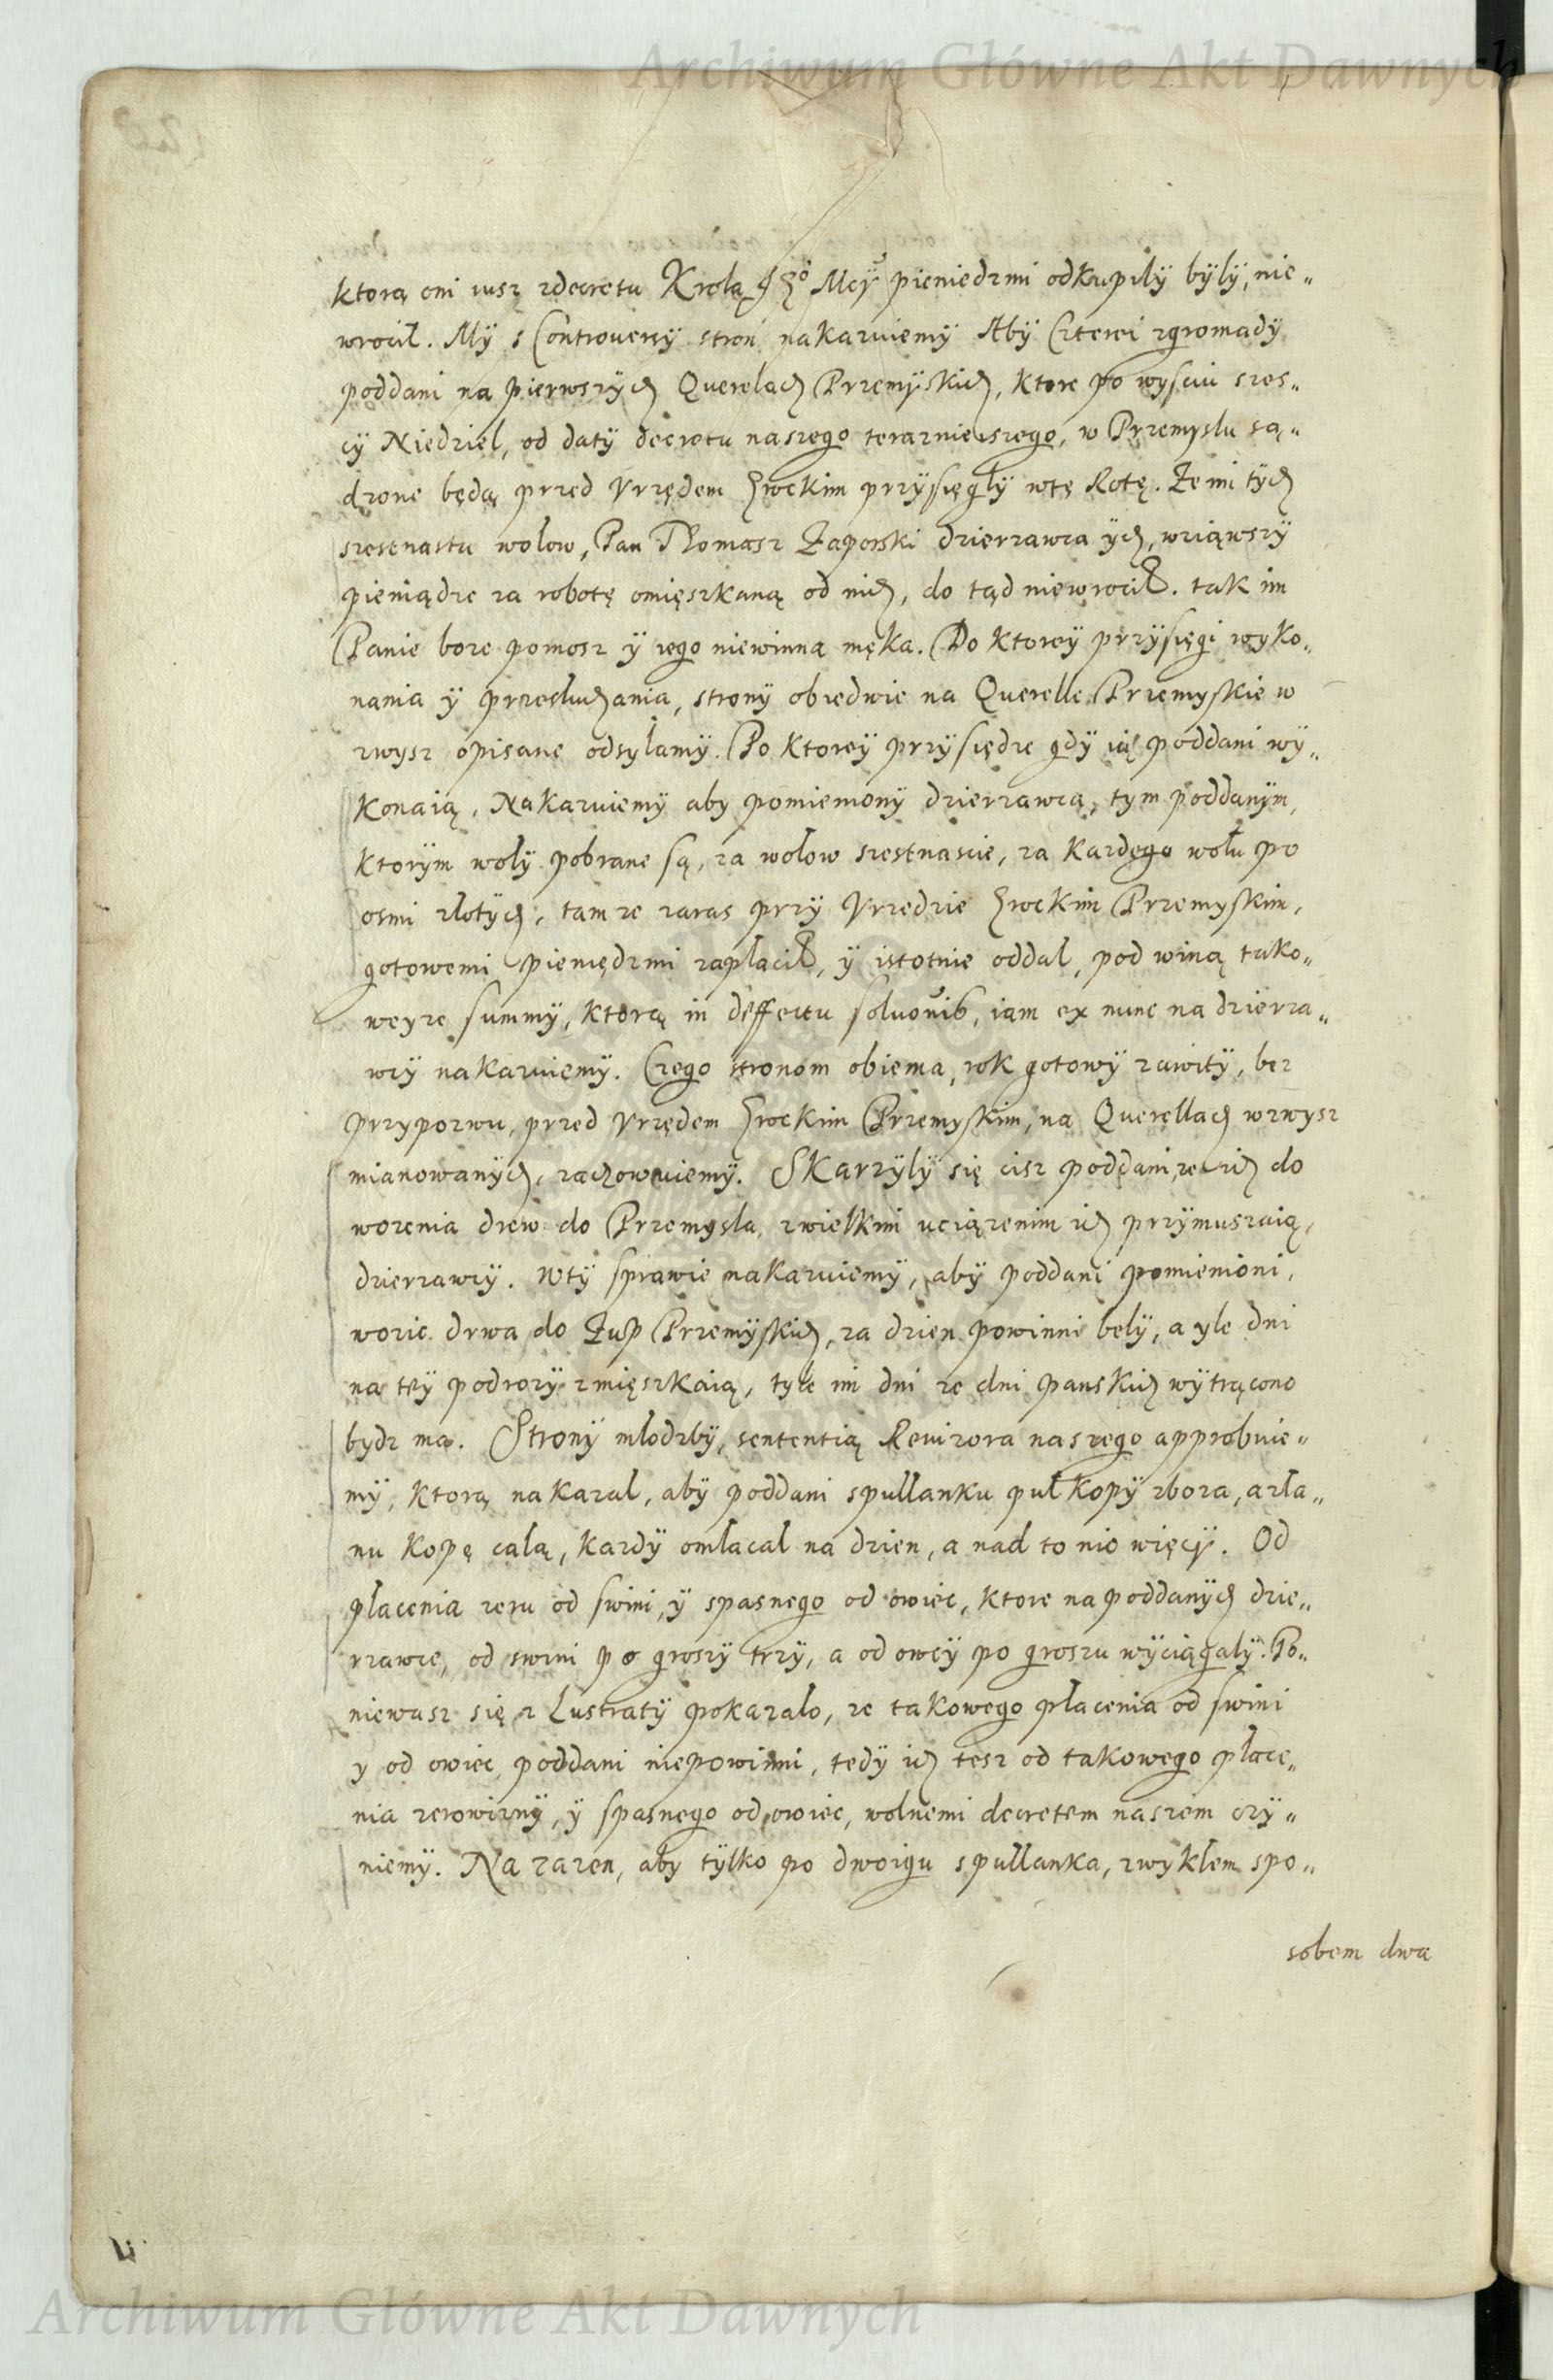 Archiwum Główne Akt Dawnych
ktorą oni iusz zdecretu Krolą Jgo Mcy pieniedzmi odkupily były, nie„
wrocil. My s Controversy stron nakazuiemy Aby Czterei zgromady
poddani na pierwszych Querelach Przemyskich, ktore po wysciu szes„
cy Niedziel, od daty decretu naszego teraznieiszego, w Przemyslu są„
dzone będą przed Vrzędem Grockim przysięgły wtę Rotę. Ze mi tych
szesnastu wolow, Pan Thomasz Zaporski dzierzawca ych, wziąwszy
pieniądze za robotę omięszkaną od nich, do tąd niewrocił. tak im
Panie boze pomosz y iego niewinna męka. Do ktorey przysięgi wyko„
nania y przesluchania, strony obiedwie na Querelle Przemyskie w
zwysz opisane odsyłamy. Po ktorey przysiędze gdy ią poddani wy„
konaią, Nakazuiemy aby pomieniony dzierzawca, tym poddanym,
ktorym woły pobrane są, za wolow szestnascie, za kazdego wołu po
osmi zlotych, tamze zaras przy Vrzedzie Grockim Przemyskim,
gotowemi pieniędzmi zapłacił, y istotnie oddal, pod winą tako„
weyze summy, ktorą in deffectu soluonis, iam ex nunc na dzierza„
wcy nakazuiemy. Czego stronom obiema, rok gotowy zawity, bez
przypozwu, przed Vrzędem Grockim Przemyskim, na Querellach wzwysz
mianowanych, zachowuiemy. Skarzyly się cisz poddani, ze ich do
wozenia drew do Przemysla, zwielkim uciązenim ich przymuszaią,
dzierzawcy. Wty sprawie nakazuiemy, aby poddani pomienioni,
wozic drwa do Zup Przemyskich, za dzien powinni bely, a yle dni
na tey podrozy zmięszkaią, tyle im dni ze dni panskich wytrącono
bydz ma. Strony mlodzby, sententią Reuizora naszego approbuie„
my, ktorą nakazal, aby poddani spullanku puł kopy zboza, a zła„
nu kopę calą, kazdy omlacal na dzien, a nad to nic więcy. Od
płacenia zeru od swini, y spasnego od owiec, ktore na poddanych dzie„
rzawce, od swini po groszy trzy, a od owcy po groszu wyciągaly. Po„
niewasz się z Lustraty pokazalo, ze takowego płacenia od swini
y od owiec poddani niepowinni, tedy ich tesz od takowego płace„
nia zerowizny, y spasnego od owiec, wolnemi decretem naszem czy„
niemy. Na zazen, aby tylko po dwoigu spullanka, zwyklem spo„
sobem dwa
Archiwum Główne Akt Dawnych